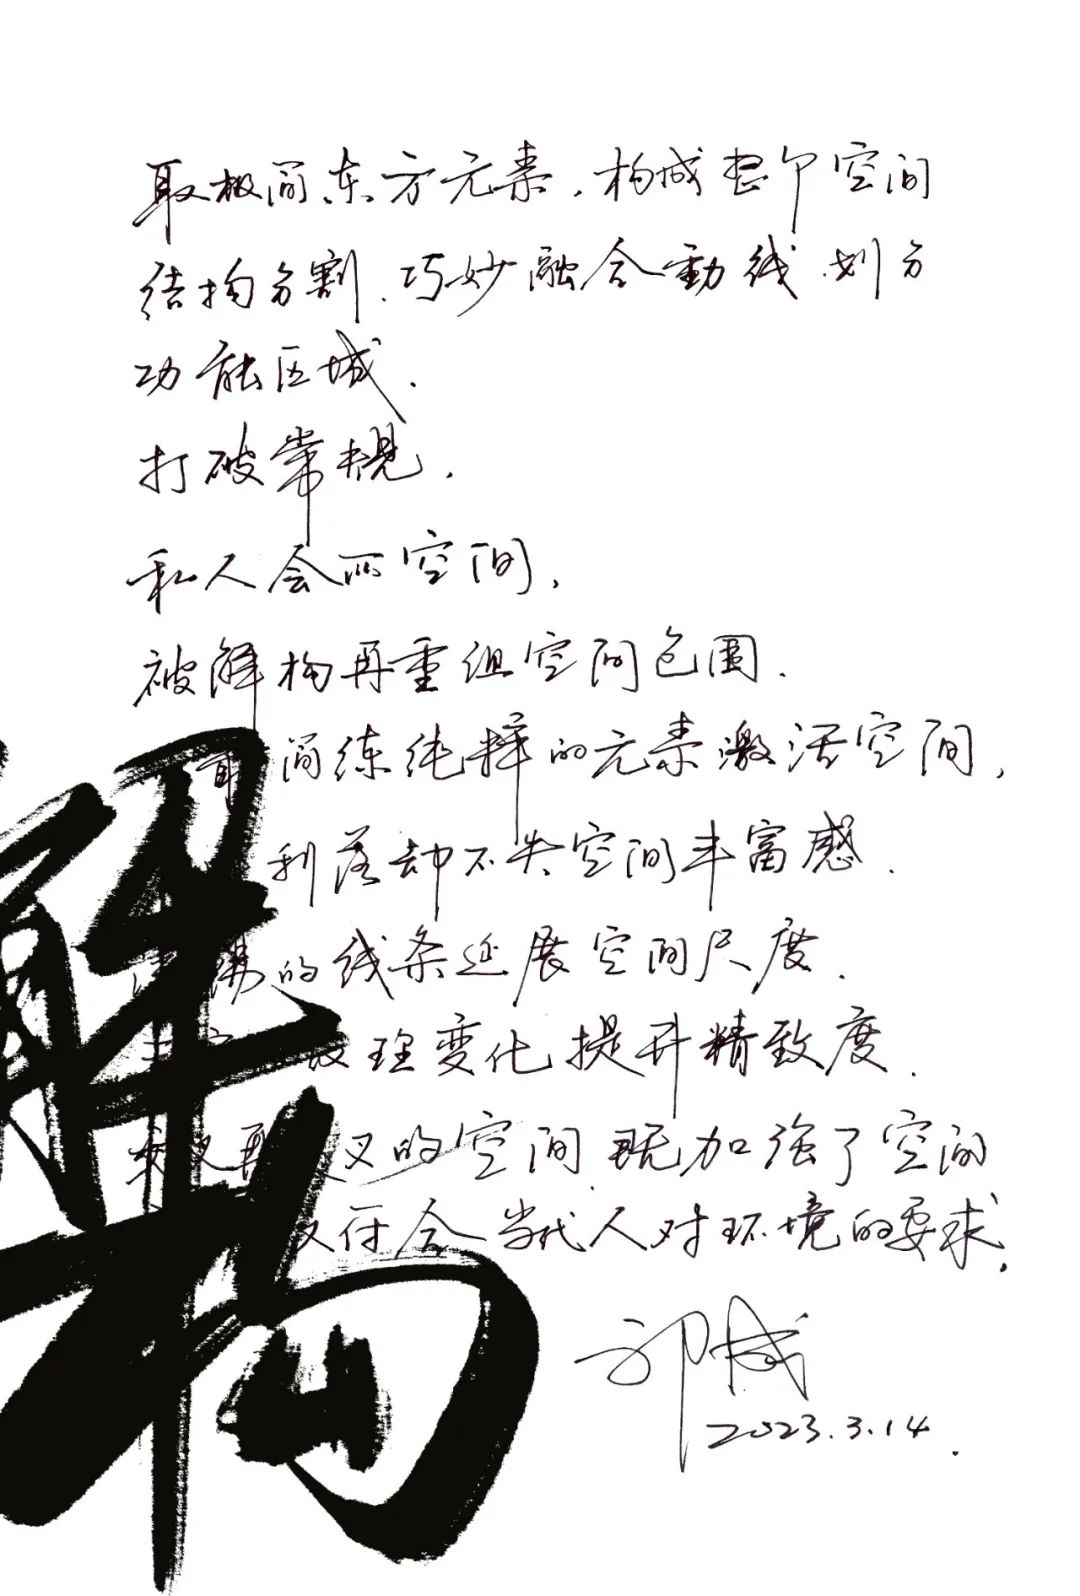 取极简东方元素,构成整个空间
结构分割.巧妙融合動线.划分
功能区域.
打破常规.
私人会所空间,
被解构再重组空间包围.
取简练纯粹的元素激活空间,
利落却不失空间丰富感.
的线条延展空间尺度.
纹理变化提升精致度.
的空间.既加强了空间
又符合当代人对环境的要求.
解构
2023.3.14.